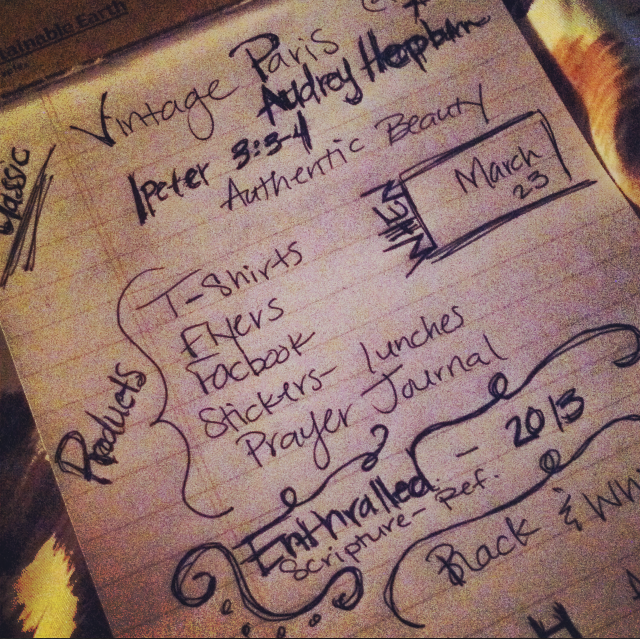 tainable Earth
Vintage Paris
Audrey Hepburn
Classic
1 Peter 3:3-4
Authentic Beauty
WHEN
March
23
Products
T-Shirts
Flyers
Facbook
Stickers- lunches
Prayer Journal
Enthralled - 2013
Scripture- Ref.
Black & Wh